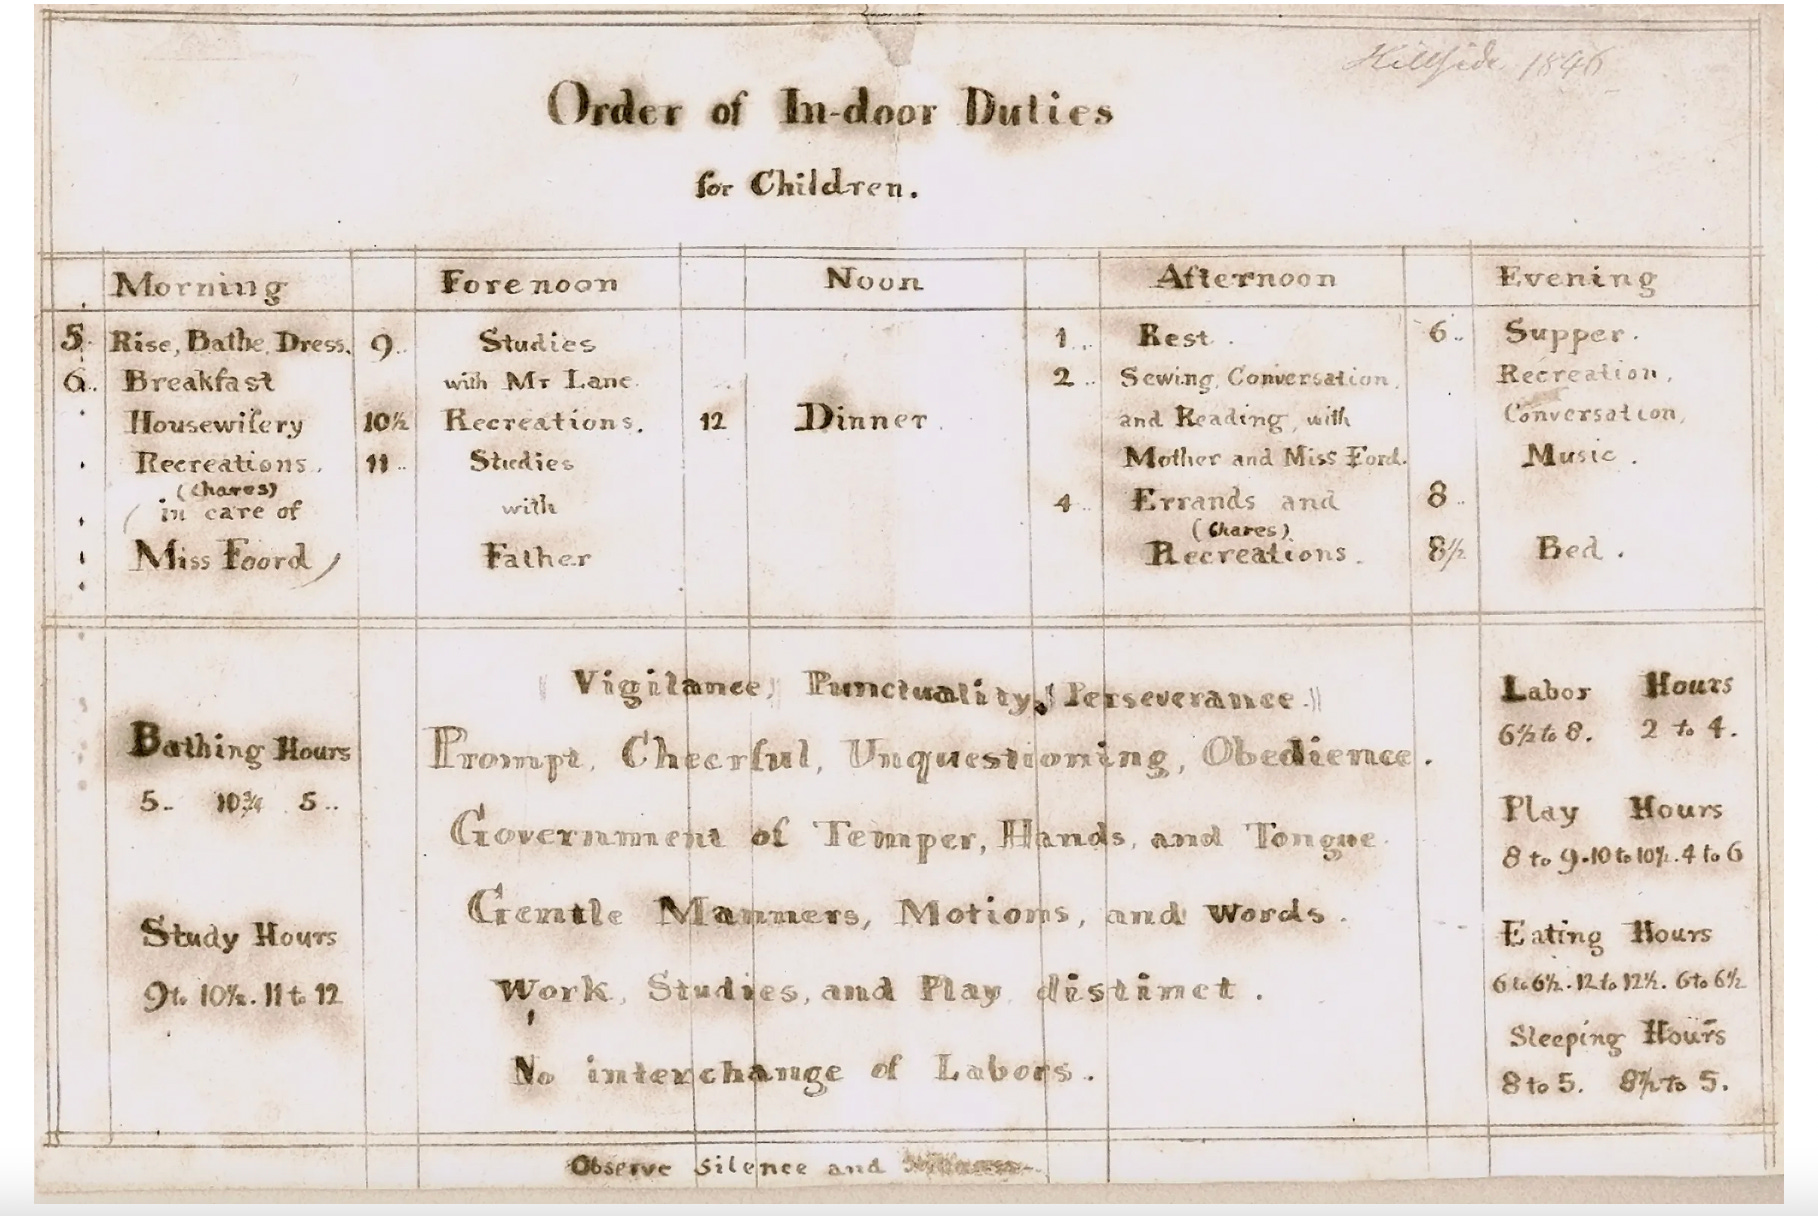 Hillside 1846
Order of In-door Duties
for Children.
Morning
5. Rise, Bathe, Dress.
6.. Breakfast
Housewifery
Recreations.
(Chares)
(in care of
Miss Foord)
Forenoon
9.. Studies
with Mr Lane.
10½ Recreations.
11.. Studies
with
Father
Noon
12 Dinner.
Afternoon
1.. Rest.
2.. Sewing, Conversation,
and Reading, with
Mother and Miss Ford.
4.. Errands and
(Chares)
Recreations.
Evening
6.. Supper.
Recreation,
Conversation,
Music.
8..
8½ Bed.
Bathing Hours
5.. 10¾ 5..
Study Hours
9 to 10½. 11 to 12
(Vigilance, Punctuality, Perseverance.)
Prompt, Cheerful, Unquestioning, Obedience.
Government of Temper, Hands, and Tongue.
Gentle Manners, Motions, and Words.
Work, Studies, and Play, distinct.
No interchange of Labors.
Labor Hours
6½ to 8. 2 to 4.
Play Hours
8 to 9. 10 to 10½. 4 to 6
Eating Hours
6 to 6½. 12 to 12½. 6 to 6½
Sleeping Hours
8 to 5. 8½ to 5.
Observe silence and